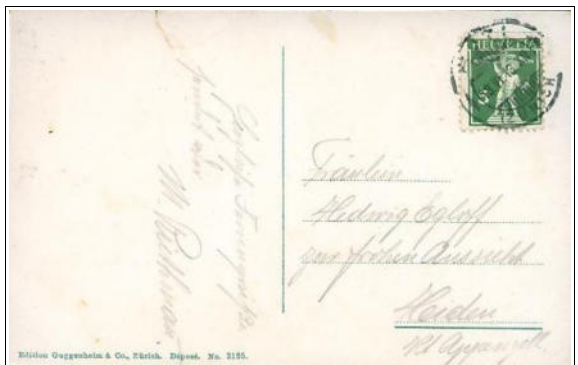 HELVETIA
5
Fräulein
Hedwig Egloff
zur frohen Aussicht
Heiden
Kt Appenzell
Herzliche
sendet
M.
Edition Guggenheim & Co., Zürich. Déposé. No. 2155.